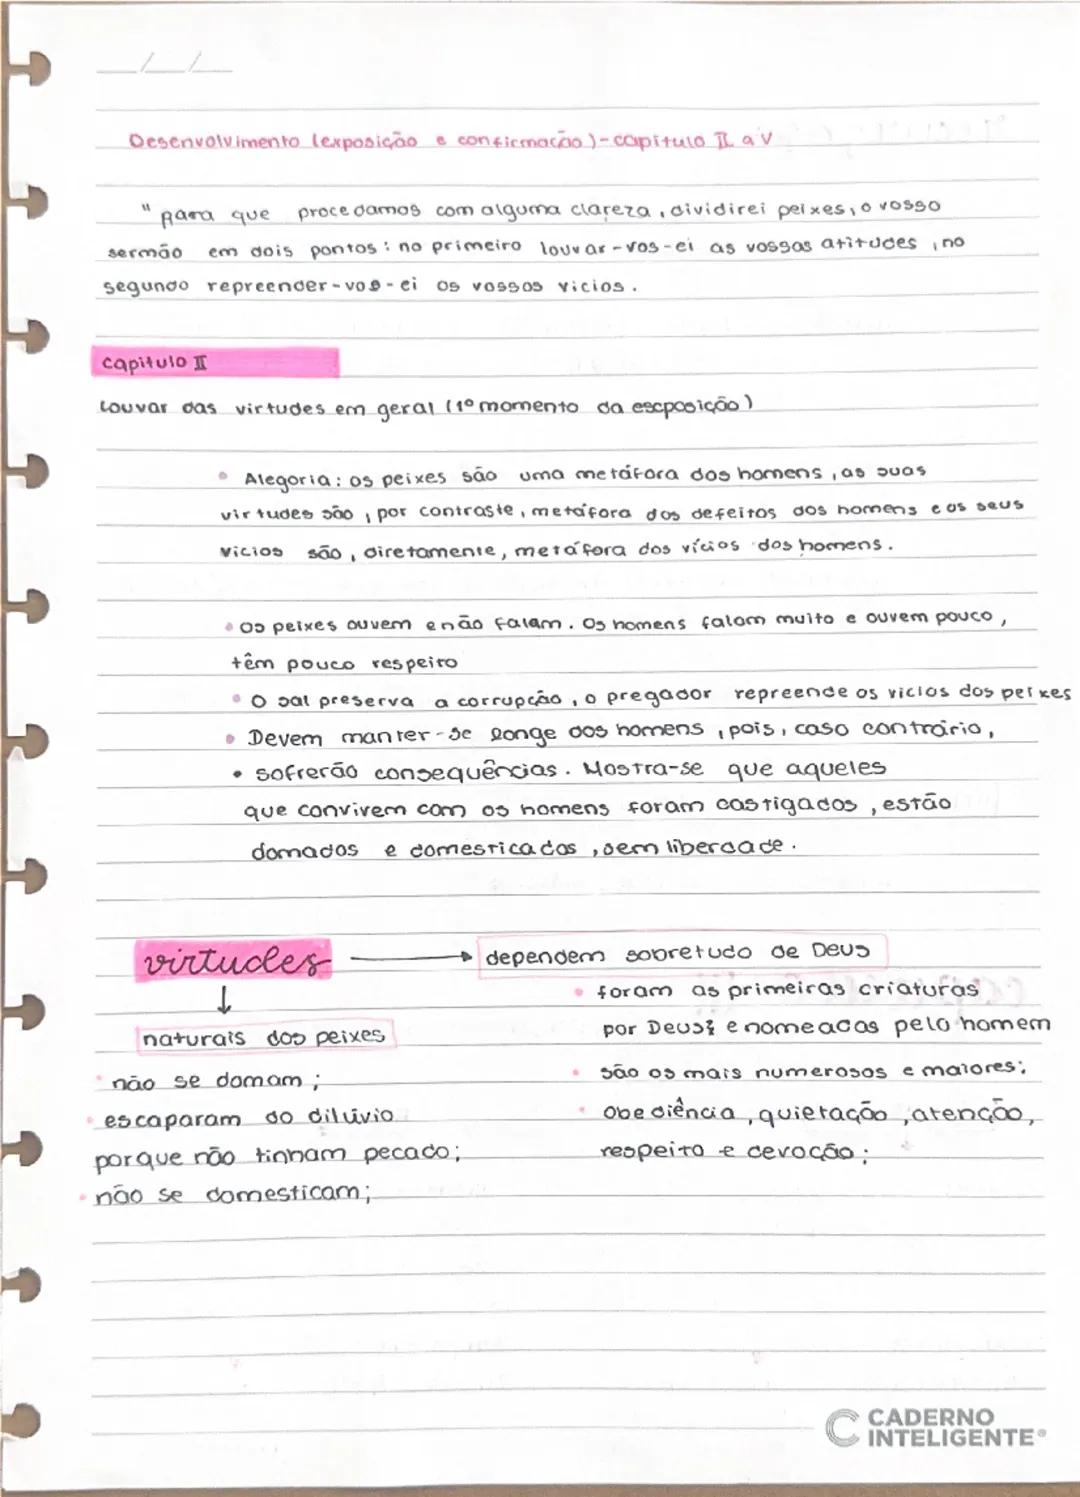 __/__/__
Desenvolvimento (exposição e confirmação) - capítulo II a V
"para que procedamos com alguma clareza, dividirei peixes, o vosso
sermão em dois pontos: no primeiro louvar-vos-ei as vossas atitudes, no
segundo repreender-vos-ei os vossos vicios.
capitulo II
Louvar das virtudes em geral (1º momento da escposição)
• Alegoria: os peixes são uma metáfora dos homens, as suas
virtudes são, por contraste, metáfora dos defeitos dos homens e os seus
vicios são, diretamente, metáfora dos vícios dos homens.
• Os peixes ouvem e não falam. Os homens falam muito e ouvem pouco,
têm pouco respeito
• O sal preserva a corrupção, o pregador repreende os vicios dos peixes
• Devem manter-se longe dos homens, pois, caso contrário,
• sofrerão consequências. Mostra-se que aqueles
que convivem com os homens foram castigados, estão
domados e domesticados, sem liberdade.
virtudes → dependem sobretudo de Deus
↓
• foram as primeiras criaturas
naturais dos peixes
por Deus; e nomeadas pelo homem
• não se domam;
• são os mais numerosos e maiores;
• escaparam do dilúvio
• Obediência, quietação, atenção,
porque não tinham pecado;
respeito e devoção;
• não se domesticam;
CADERNO
INTELIGENTE®